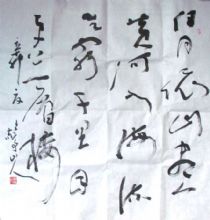 白日依山尽
黄河入海流
欲穷千里目
更上一層楼